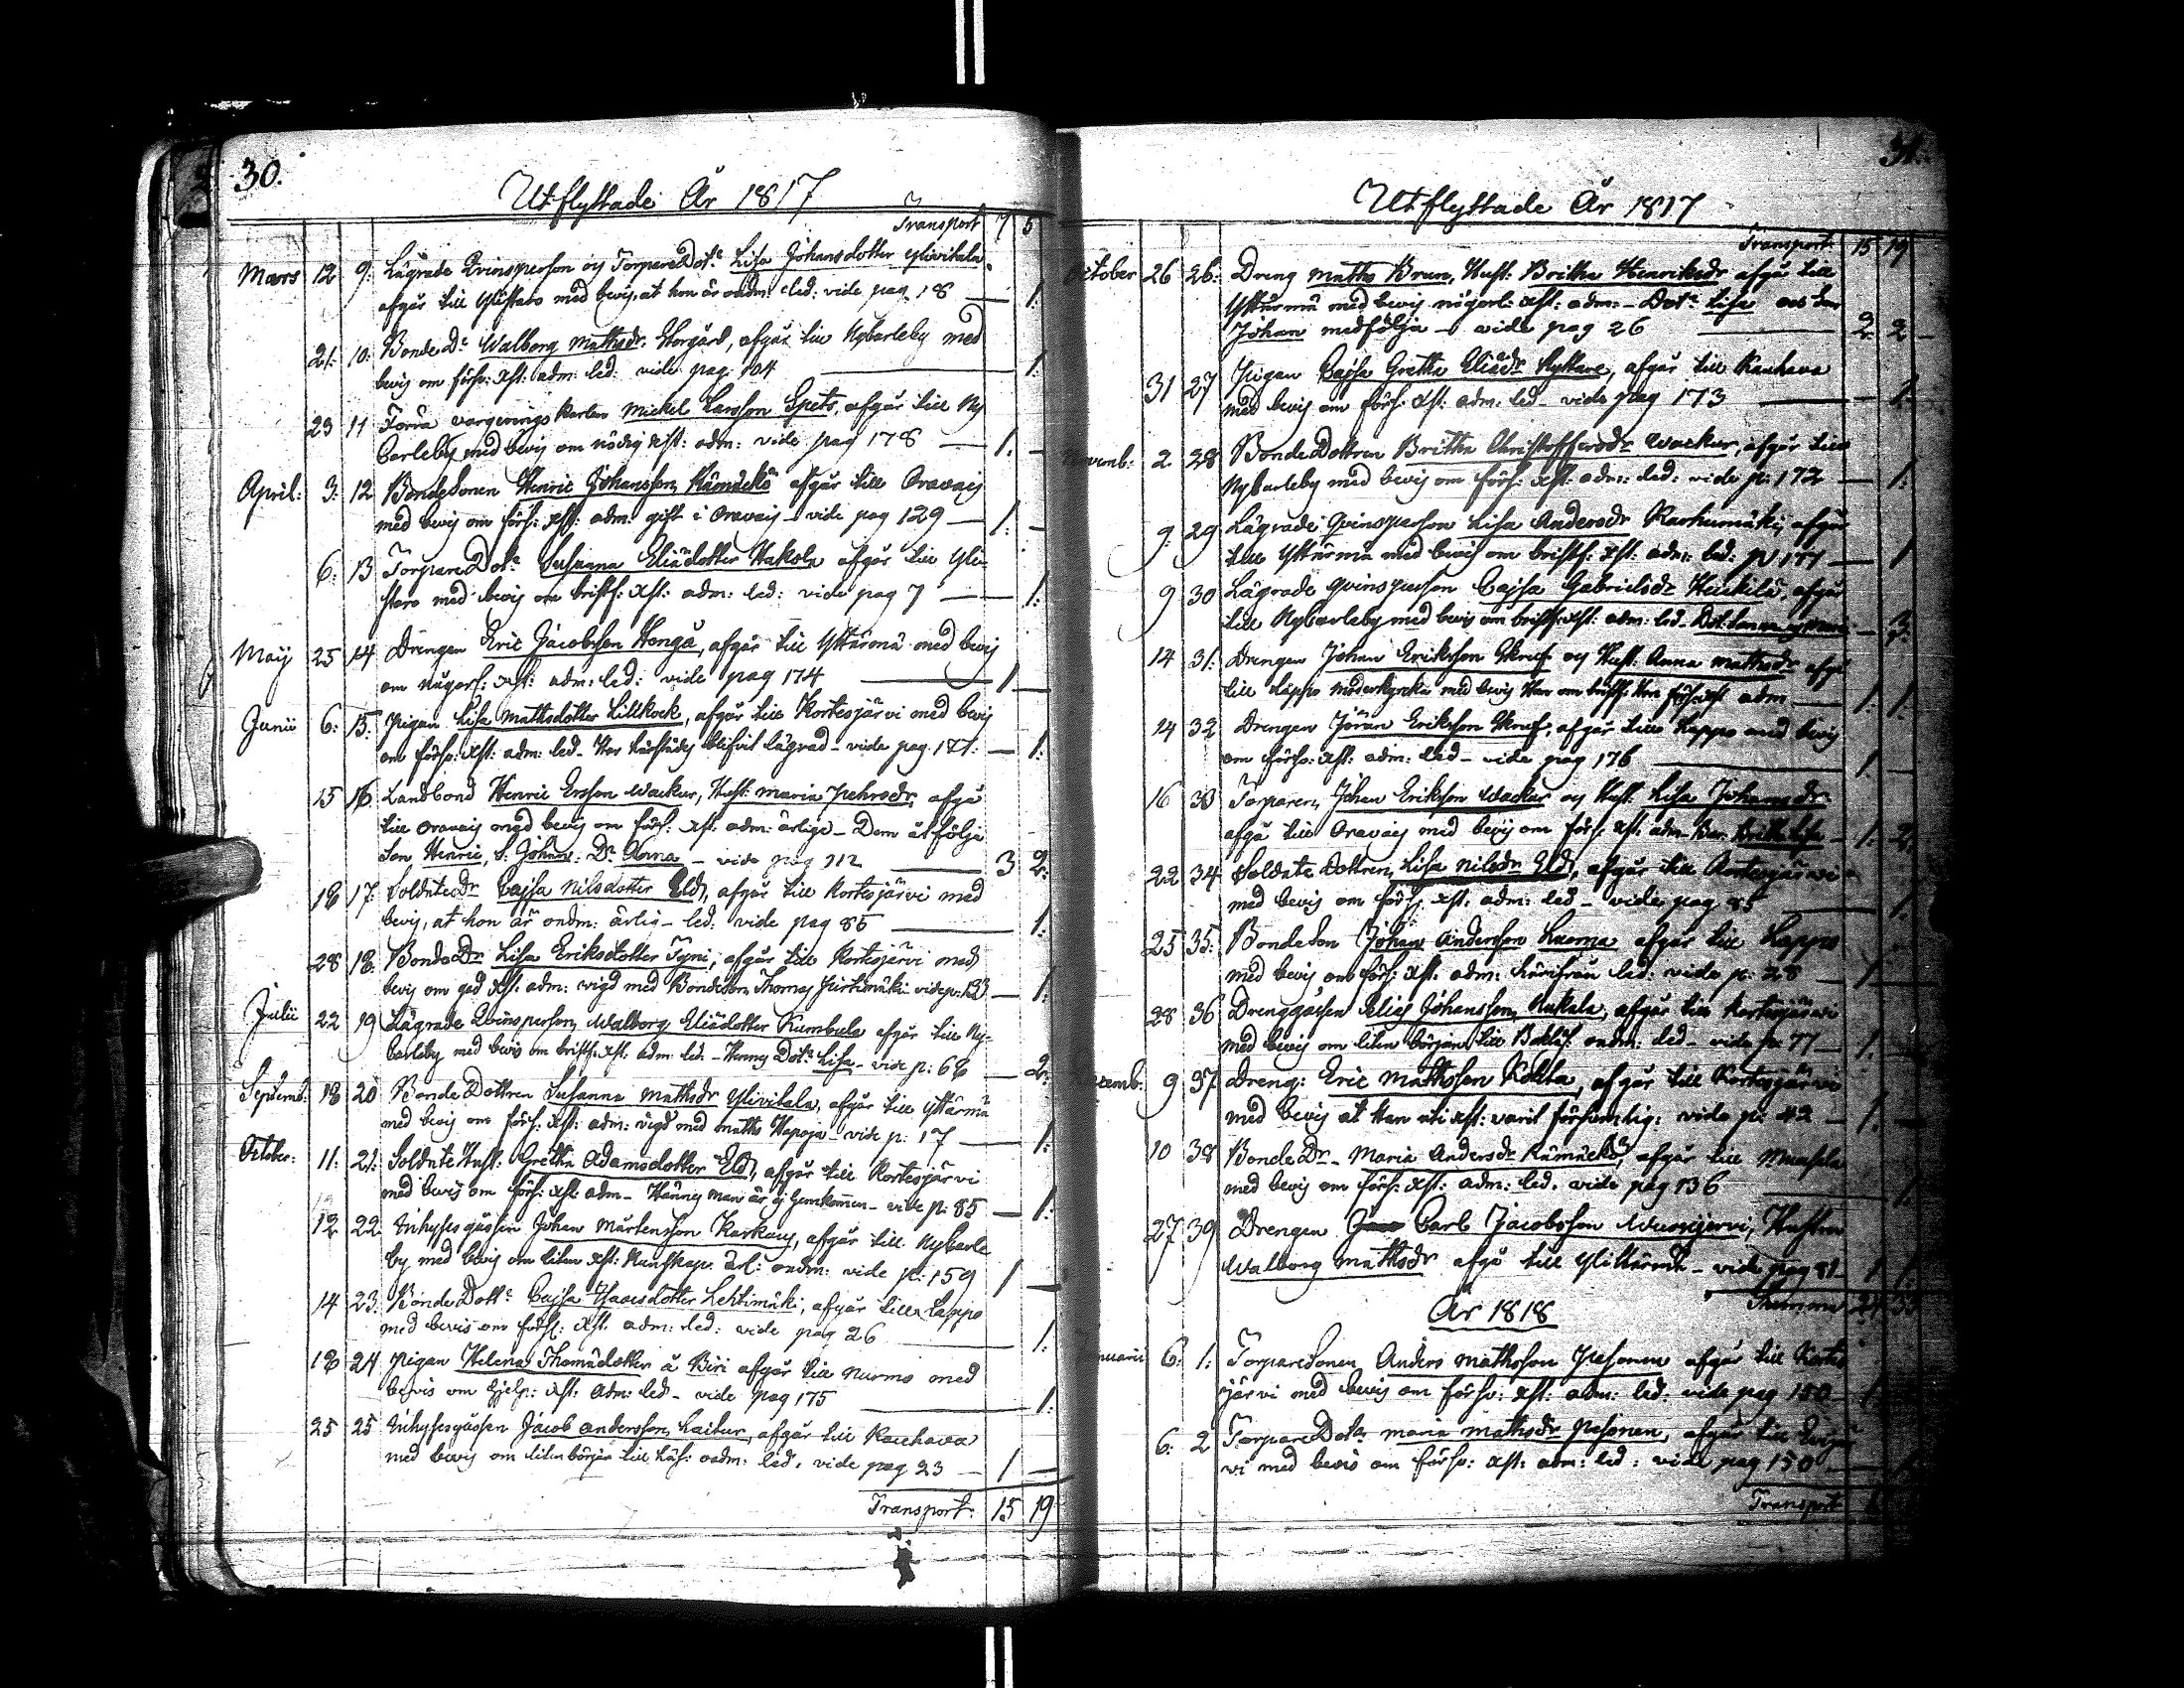 30.
Utflyttade År 1817
Transport 7 5
Mars 12 9: Lägrade Qvinsperson og Torpare Dotr Lisa Johansdotter Ylivitala
afgår till Ylistaro med bevis, at hon är oadm: led: vide pag. 18 — 1:
21. 10: Bonde Dr Walborg Mathsdr Storgård, afgår till Nycarleby med
bevis om förs: Xst: adm: led: vide pag: 104 — 1:
23 11 Förra vargerings karlen Mickel Larsson Spets, afgår till Ny
Carleby med bevis om nödig Xst: adm: vide pag 178 — 1. –
April: 3: 12 Bondesonen Henric Johansson afgår till Oravais
med bevis om förs: Xst: adm: gift i Oravais – vide pag 129 — 1: –
6: 13 Torpare Dotr Susanna Eliædotter Hakola afgår till Yli-
staro med bevis om bristf: Xst: adm: led: vide pag 7 — 1:
Maij 25 14 Drengen Eric Jacobsson Honga, afgår till Ytterm̈ä med bevis
om någorl: Xst: adm: led: vide pag 174 — 1 –
Junii 6: 15: Pigan Lisa Mathsdotter Lillkock, afgår till Kortesjärvi med bevis
om försv: Xst: adm: led – Har härstädes blifvit lägrad – vide pag: 177: — 1:
15 16 Landbond Henric Ersson Wackur, Hust: Maria Pehrsdr, afgå
till Oravais med bevis om förs: Xst: adm: ärlige – Dem åtfölja
Son Henric, S: Johan: Dr Anna – vide pag 112 — 3 2:
18 17: Soldate Dr Cajsa Nilsdotter Eld, afgår till Kortesjärvi med
bevis, at hon är oadm: ärlig – led: vide pag 85 — 1:
28 18: Bonde Dr Lisa Eriksdotter Tyni, afgår till Kortesjervi med
bevis om god Xst: adm: vigd med Bondeson Thomas vide p: 133 — 1:
Julii 22 19 Lägrade Qvinsperson Walborg Eliædotter Kumbula afgår till Ny-
Carleby med bevis om bristf: Xst: adm: led. – Hennes Dotr Lisa – vide p: 68 — 2:
Septemb: 18 20 Bonde Dottren Susanna Mathsdr Ylivitala, afgår till Yttermä
med bevis om förs: Xst: adm: vigd med Maths Hapoja – vide p: 17 — 1:
October: 11: 21: Soldate Hust: Gretha Adamsdotter Eld, afgår till Kortesjärvi
med bevis om förs: Xst: adm – Hännes man är ej hemkommen – vide p: 85 — 1:
12 22 Inhyses gossen Johan Mårtensson Karkaus, afgår till Nycarle
by med bevis om liten Xst: Kunskap. ärl: oadm: vide p: 159 1 —
14 23: Bonde Dottr Cajsa Isaacsdotter Lehtimäki, afgår till Lappo
med bevis om förs: Xst. adm: led: vide pag 26 — 1:
18 24 Pigan Helena Thomædotter å Biri afgår till Nurmo med
bevis om hjelp: Xst: adm: led – vide pag 175 — 1:
25 25 Inhysesgossen Jacob Andersson Laitur, afgår till Kauhava
med bevis om liten början till Läs: oadm: led, vide pag 23 — 1 —
Transport: 15 19
31.
Utflyttade År 1817
Transport: 15 19
October 26 26: Dreng Maths Brun, Hust: Britha Henriksdr afgår till
Yttermä med bevis någorl: Xst: adm: – Dotr Lisa och Son
Johan medfölja – vide pag 26 — 2: 2 –
31 27 Pigan Cajsa Gretha Eliædr Ryttare, afgår till Kauhava
med bevis om förs: Xst: adm: led – vide pag 173 — 1:
2. 28 Bonde Dottren Britha Christoffersdr Wackur, afgår till
Nycarleby med bevis om förs: Xst: adm: led: vide p: 172 — 1:
9: 29 Lägrade Qvinsperson Lisa Andersdr Karhumäki, afgår
till Yttermä med bevis om bristf: Xst: adm: led: p: 177 — 1
9 30 Lägrade Qvinsperson Cajsa Gabrielsdr Heickilä, afgår
till Nycarleby med bevis om bristf: Xst: adm: led – — 3:
14 31: Drengen Johan Eriksson Skruf og Hust: Anna Mathsdr afgå
till Lappo Moderkyrka med bevis Han om bristf: Hon förs: Xst: adm — 1: 1:
14 32 Drengen Jöran Eriksson Skruf, afgår till Lappo med bevis
om försv: Xst: adm: led – vide pag 176 — 1: –
16 33 Torparen Johan Eriksson Wackur og Hust: Lisa Johansdr
afgå till Oravais med bevis om förs: Xst: adm. – — 1: 2:
22 34 Soldate Dottren Lisa Nilsdr Eld, afgår till Kortesjärvi
med bevis om förs: Xst: adm: led – vide pag 85 — 1:
25 35: Bondeson Johan Andersson Luoma afgår till Lappo
med bevis om förs: Xst: adm: härifrån led: vide p: 28 — 1
28 36 Drenggossen Elias Johansson, afgår till Kortesjärvi
med bevis om liten början till oadm: led – vide p: 77 — 1:
9 37 Dreng: Eric Mathsson Kolla, afgår till Kortesjärvi
med bevis at Han uti Xst: varit försumlig: vide p: 42 — 1. –
10 38 Bonde Dr – Maria Andersdr afgår till
med bevis om förs: Xst: adm: led. vide pag 136 — 1:
27 39 Drengen Carl Jacobsson, Hustrun
Walborg Mathsdr afgå till Ylihärmä – vide pag 81 – 1 1:
Summa
År 1818
6: 1: Torparesonen Anders Mathsson Pesonen afgår till Korte
järvi med bevis om försv: Xst: adm: led: vide pag 150 – 1
6: 2 Torpare Dotr Maria Mathsdr Pesonen, afgår till
vi med bevis om försv: Xst: adm: led: vide pag 150 — 1
Transport